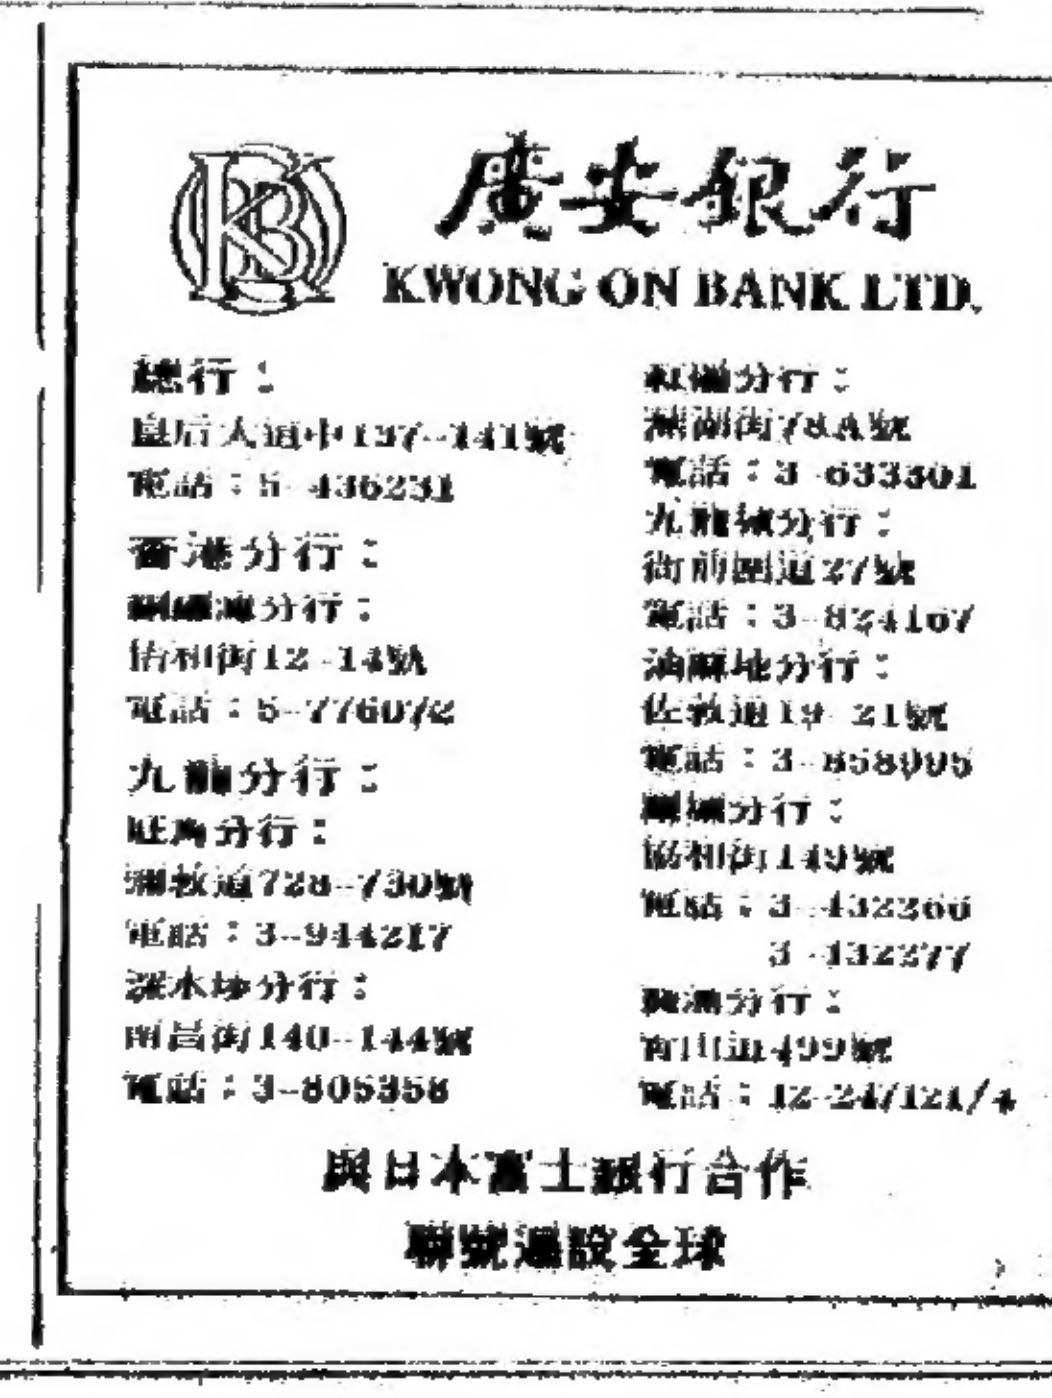 KOB
廣安銀行
KWONG ON BANK LTD.
總行：
皇后大道中137-141號
電話：5-436231
香港分行：
銅鑼灣分行：
怡和街12-14號
電話：5-776072
九龍分行：
旺角分行：
彌敦道728-730號
電話：3-944217
深水埗分行：
南昌街140-144號
電話：3-805358
紅磡分行：
蕪湖街78A號
電話：3-633301
九龍城分行：
衙前圍道27號
電話：3-824167
油麻地分行：
佐敦道19-21號
電話：3-858995
觀塘分行：
協和街149號
電話：3-432266
3-432277
荃灣分行：
青山道499號
電話：12-247121/4
與日本富士銀行合作
聯號遍設全球